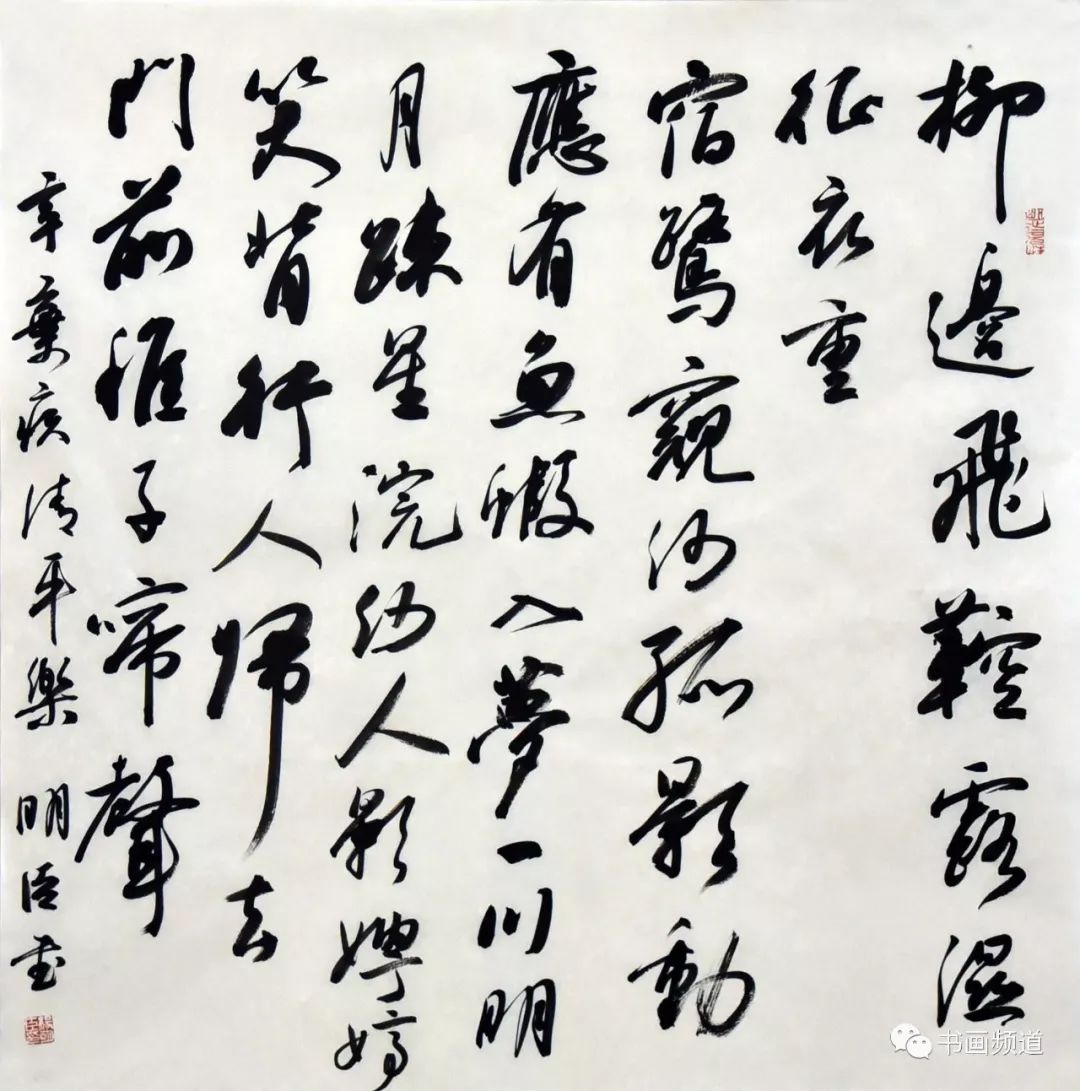 柳邊飛鞚露濕
征衣重
宿鷺窺沙孤影動
應有魚蝦入夢一川明
月疎星浣紗人影娉婷
笑背行人歸去
門前稚子啼聲
辛棄疾清平樂 明臣書
书画频道